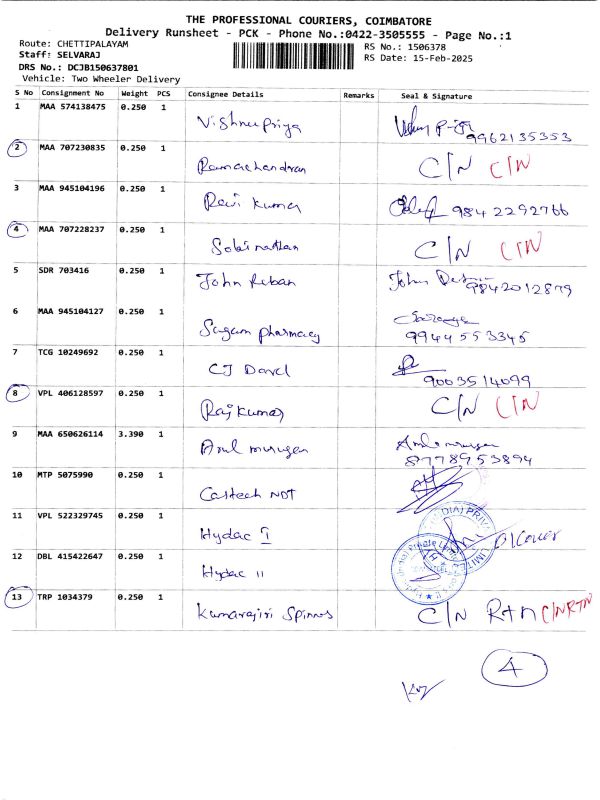 THE PROFESSIONAL COURIERS, COIMBATORE
Delivery Runsheet - PCK - Phone No.:0422-3505555 - Page No.:1
Route: CHETTIPALAYAM
RS No.: 1506378
Staff: SELVARAJ
RS Date: 15-Feb-2025
DRS No.: DCJB150637801
Vehicle: Two Wheeler Delivery
S No Consignment No Weight PCS Consignee Details Remarks Seal & Signature
1 MAA 574138475 0.250 1
Vishnupriya
9962135353
2 MAA 707230835 0.250 1
Ramachandran C/N C/N
3 MAA 945104196 0.250 1
Ravi Kumar 9842292766
4 MAA 707228237 0.250 1
Sabinathan C/N C/N
5 SDR 703416 0.250 1
John Reban John
9842012879
6 MAA 945104127 0.250 1
Sugam pharmacy
9944553345
7 TCG 10249692 0.250 1
CJ David
9003514099
8 VPL 406128597 0.250 1
Rajkumar C/N C/N
9 MAA 650626114 3.390 1
Arul murugan Arul murugan
8778953894
10 MTP 5075990 0.250 1
Castech NDT
11 VPL 522329745 0.250 1
Hydac I
12 DBL 415422647 0.250 1
Hydac II
13 TRP 1034379 0.250 1
Kumaragiri Spinners C/N RTN C/N RTN
4